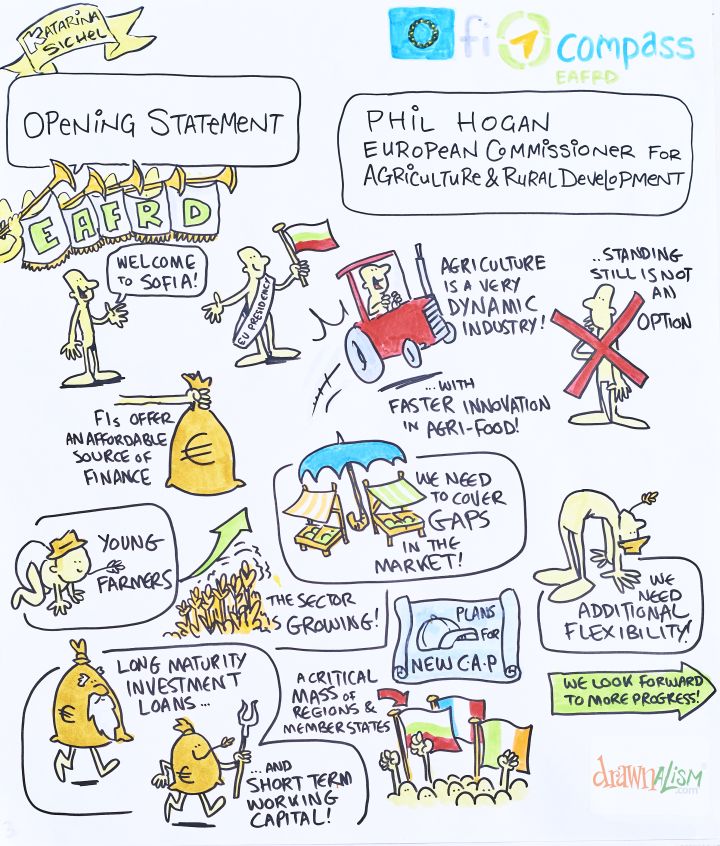 KATARINA
SICHEL
fi compass
EAFRD
OPENING STATEMENT
PHIL HOGAN
EUROPEAN COMMISSIONER FOR
AGRICULTURE & RURAL DEVELOPMENT
EAFRD
WELCOME
TO SOFIA!
EU PRESIDENCY
AGRICULTURE
IS A VERY
DYNAMIC
INDUSTRY!
..STANDING
STILL IS NOT
AN
OPTION
...WITH
FASTER INNOVATION
IN AGRI-FOOD!
FIs OFFER
AN AFFORDABLE
SOURCE OF
FINANCE
€
WE NEED
TO COVER
GAPS
IN THE
MARKET!
YOUNG
FARMERS
THE SECTOR
IS GROWING!
WE
NEED
ADDITIONAL
FLEXIBILITY!
PLANS
FOR
NEW C.A.P
LONG MATURITY
INVESTMENT
LOANS...
€
A CRITICAL
MASS OF
REGIONS &
MEMBER STATES
WE LOOK FORWARD
TO MORE PROGRESS!
€
...AND
SHORT TERM
WORKING
CAPITAL!
drawnalism
.com
3